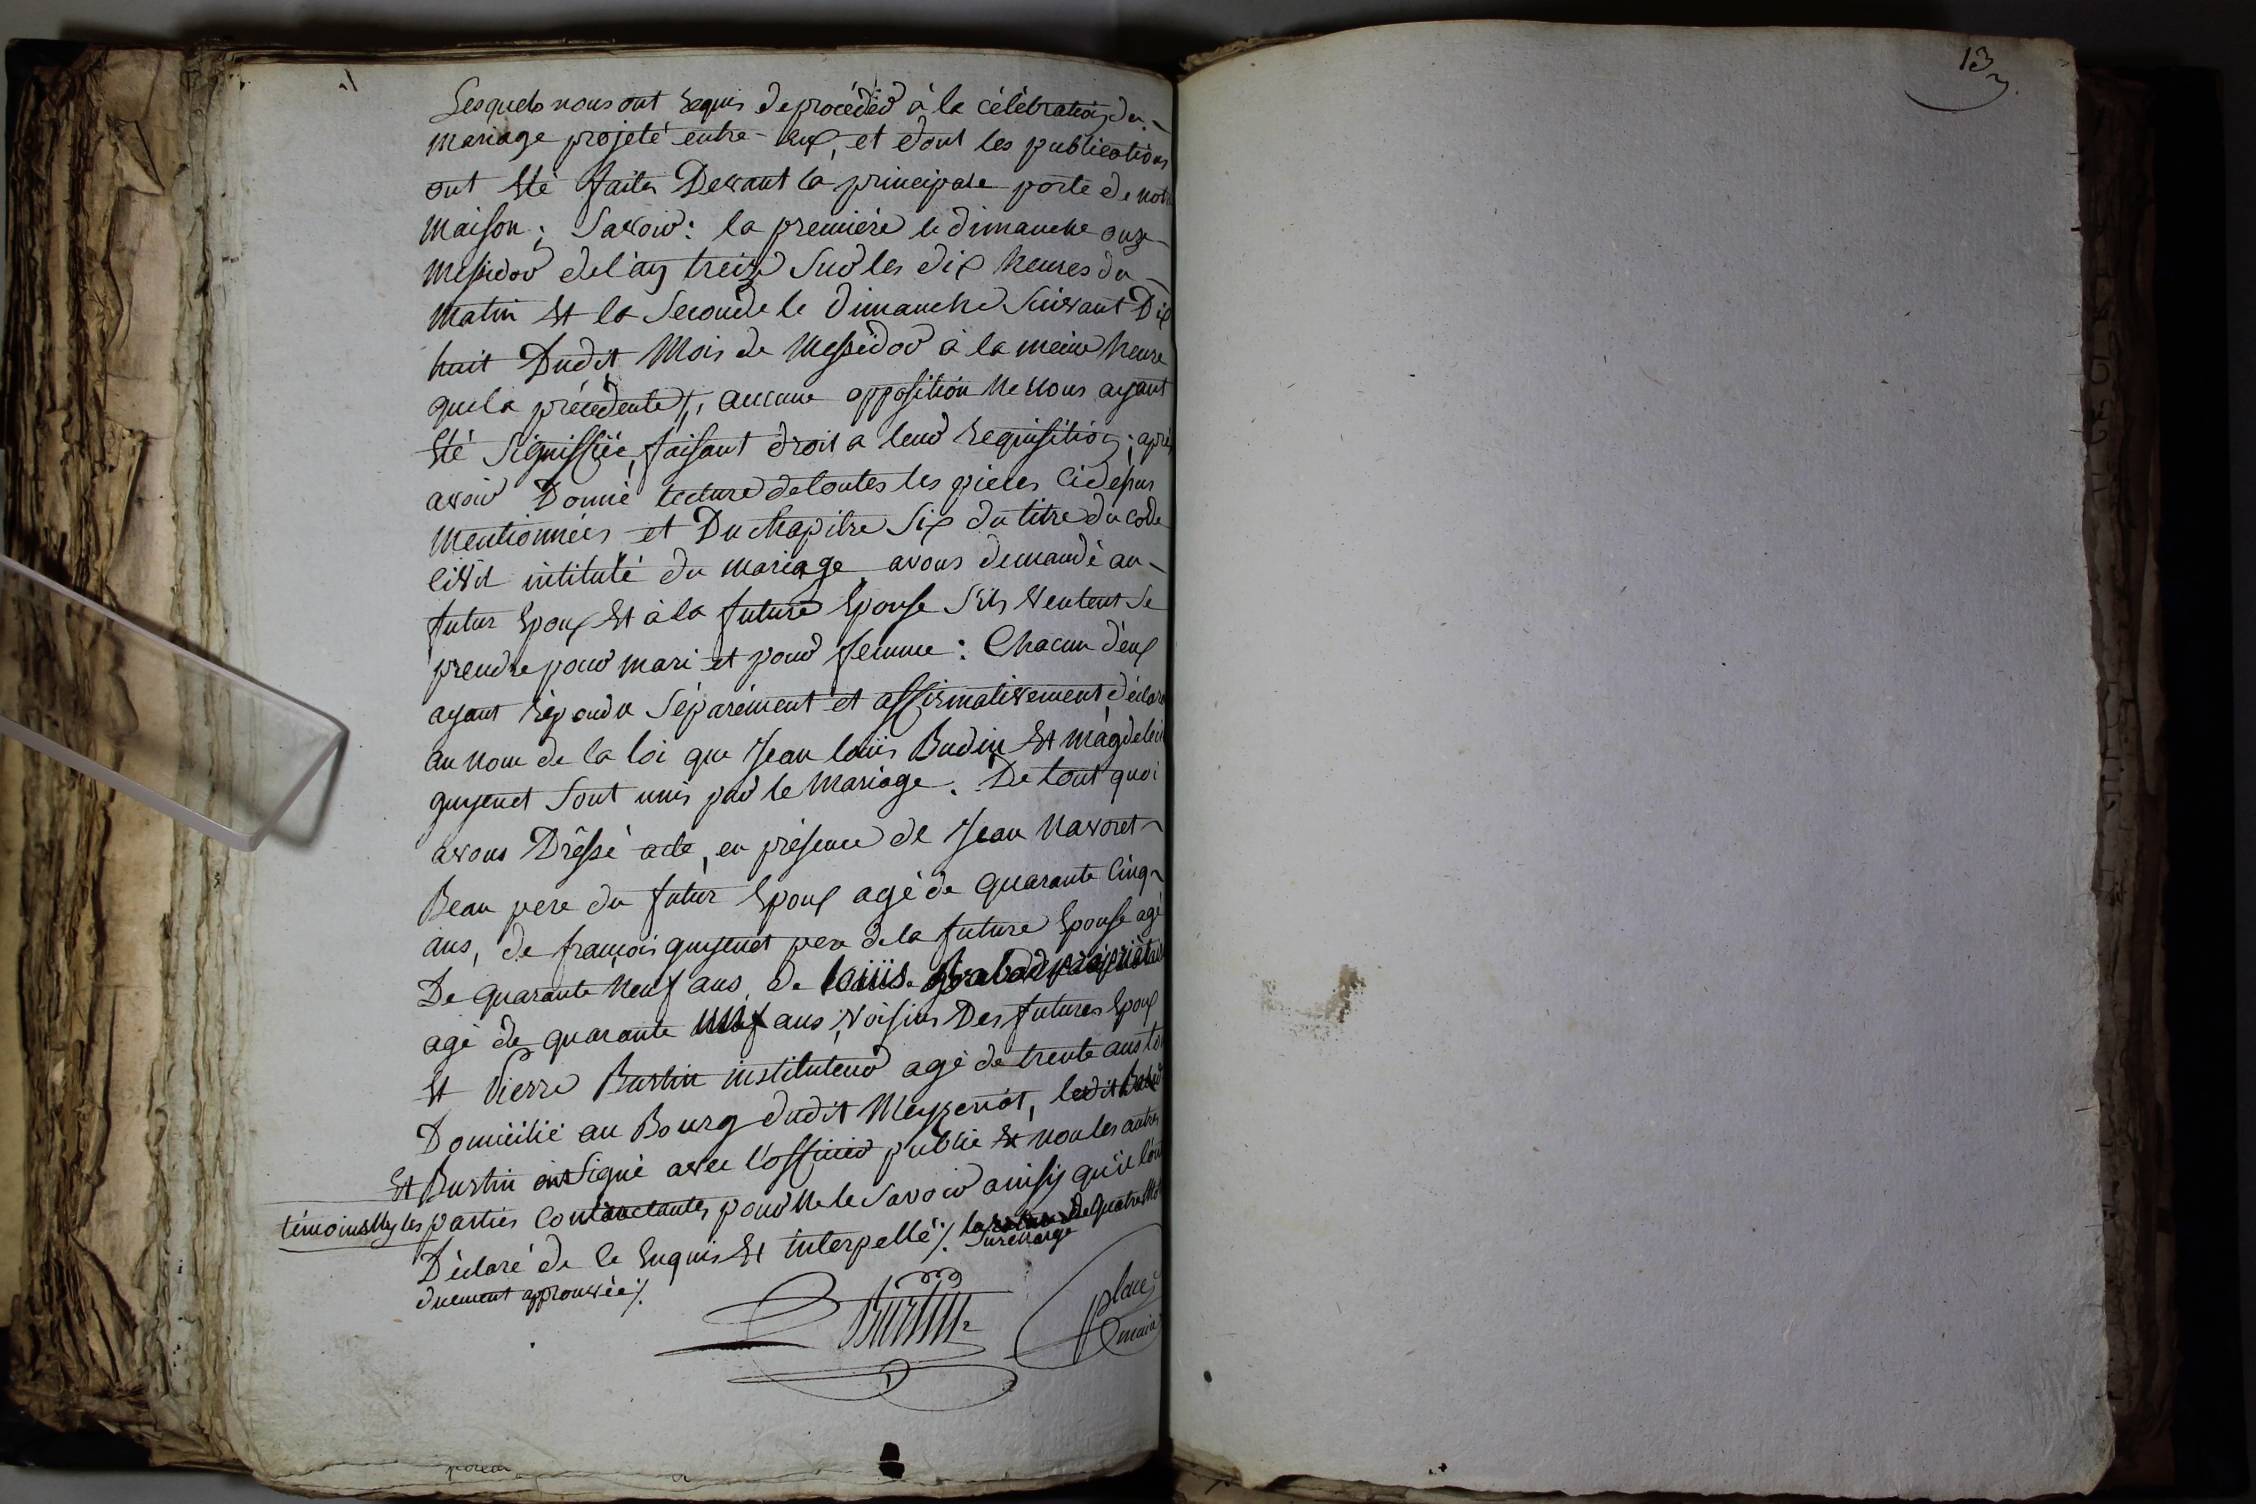 Lesquels nous ont requis de procéder à la célébration du
mariage projeté entre eux, et dont les publications
ont été faites Devant la principale porte de notre
maison; savoir: la première le dimanche onze
messidor de l'an treize sur les dix heures du
matin et la seconde le dimanche suivant Dix
huit Dudit Mois de Messidor à la même heure
que la précédente; aucune opposition ne nous ayant
été signiffiée, faisant droit a leur requisition; après
avoir Donné lecture de toutes les pièces ci dessus
mentionnées et Du chapitre six du titre du code
civil intitulé du mariage avons demandé au
futur époux et à la future épouse s'ils veulent se
prendre pour mari et pour femme: Chacun d'eux
ayant répondu séparément et affirmativement, déclaré
au nom de la loi que Jean loüis Budin et magdeleine
guyenet sont unis par le mariage. De tout quoi
avons Dressé acte, en présence de Jean Navoret
Beau pere du futur époux agé de quarante cinq
ans, de françois guyenet pere de la future épouse agé
De quarante neuf ans, de loüis propriétaire
agé de quarante neuf ans, voisins Des futures époux
et Pierre Burtin instituteur agé de trente ans
Domicilié au Bourg dudit Meyzeriat, ledit
et Burtin ont signé avec l'officier public et non les autres
témoins ny les parties contractantes pour ne le savoir ainsy qu'il l'ont
Déclaré de ce enquis et interpellé/. de quatre mots
surcharge
duement approuvée/.
Burtin
place
maire
13